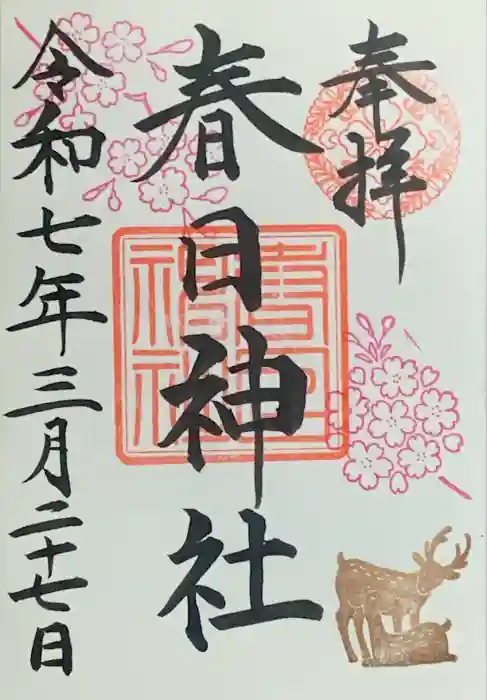 奉拝
春日神社
令和七年三月二十七日